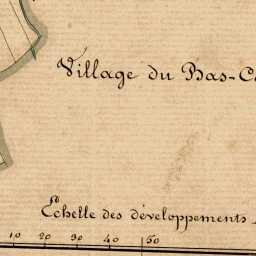 Village du Bas-
Echelle des développements
10 20 30 40 50